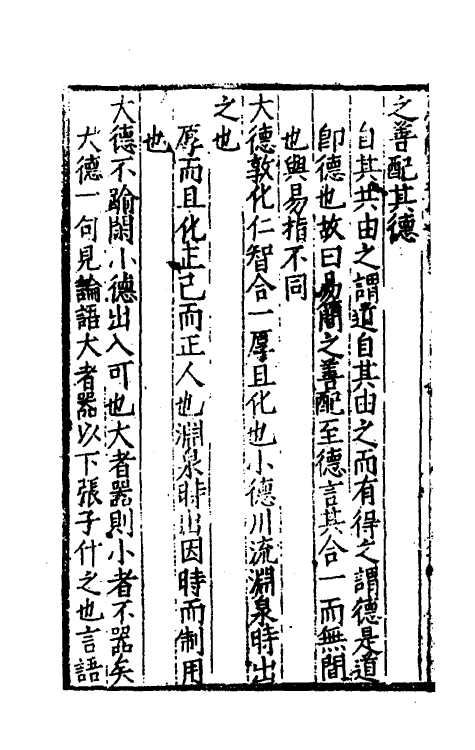 之善配其德
自其共由之謂道自其由之而有得之謂德是道
即德也故曰易簡之善配至德言其合一而無間
也與易指不同
大德敦化仁智合一厚且化也小德川流淵泉時出
之也
厚而且化正己而正人也淵泉時出因時而制用
也
大德不踰閑小德出入可也大者器則小者不器矣
大德一句見論語大者器以下張子什之也言語